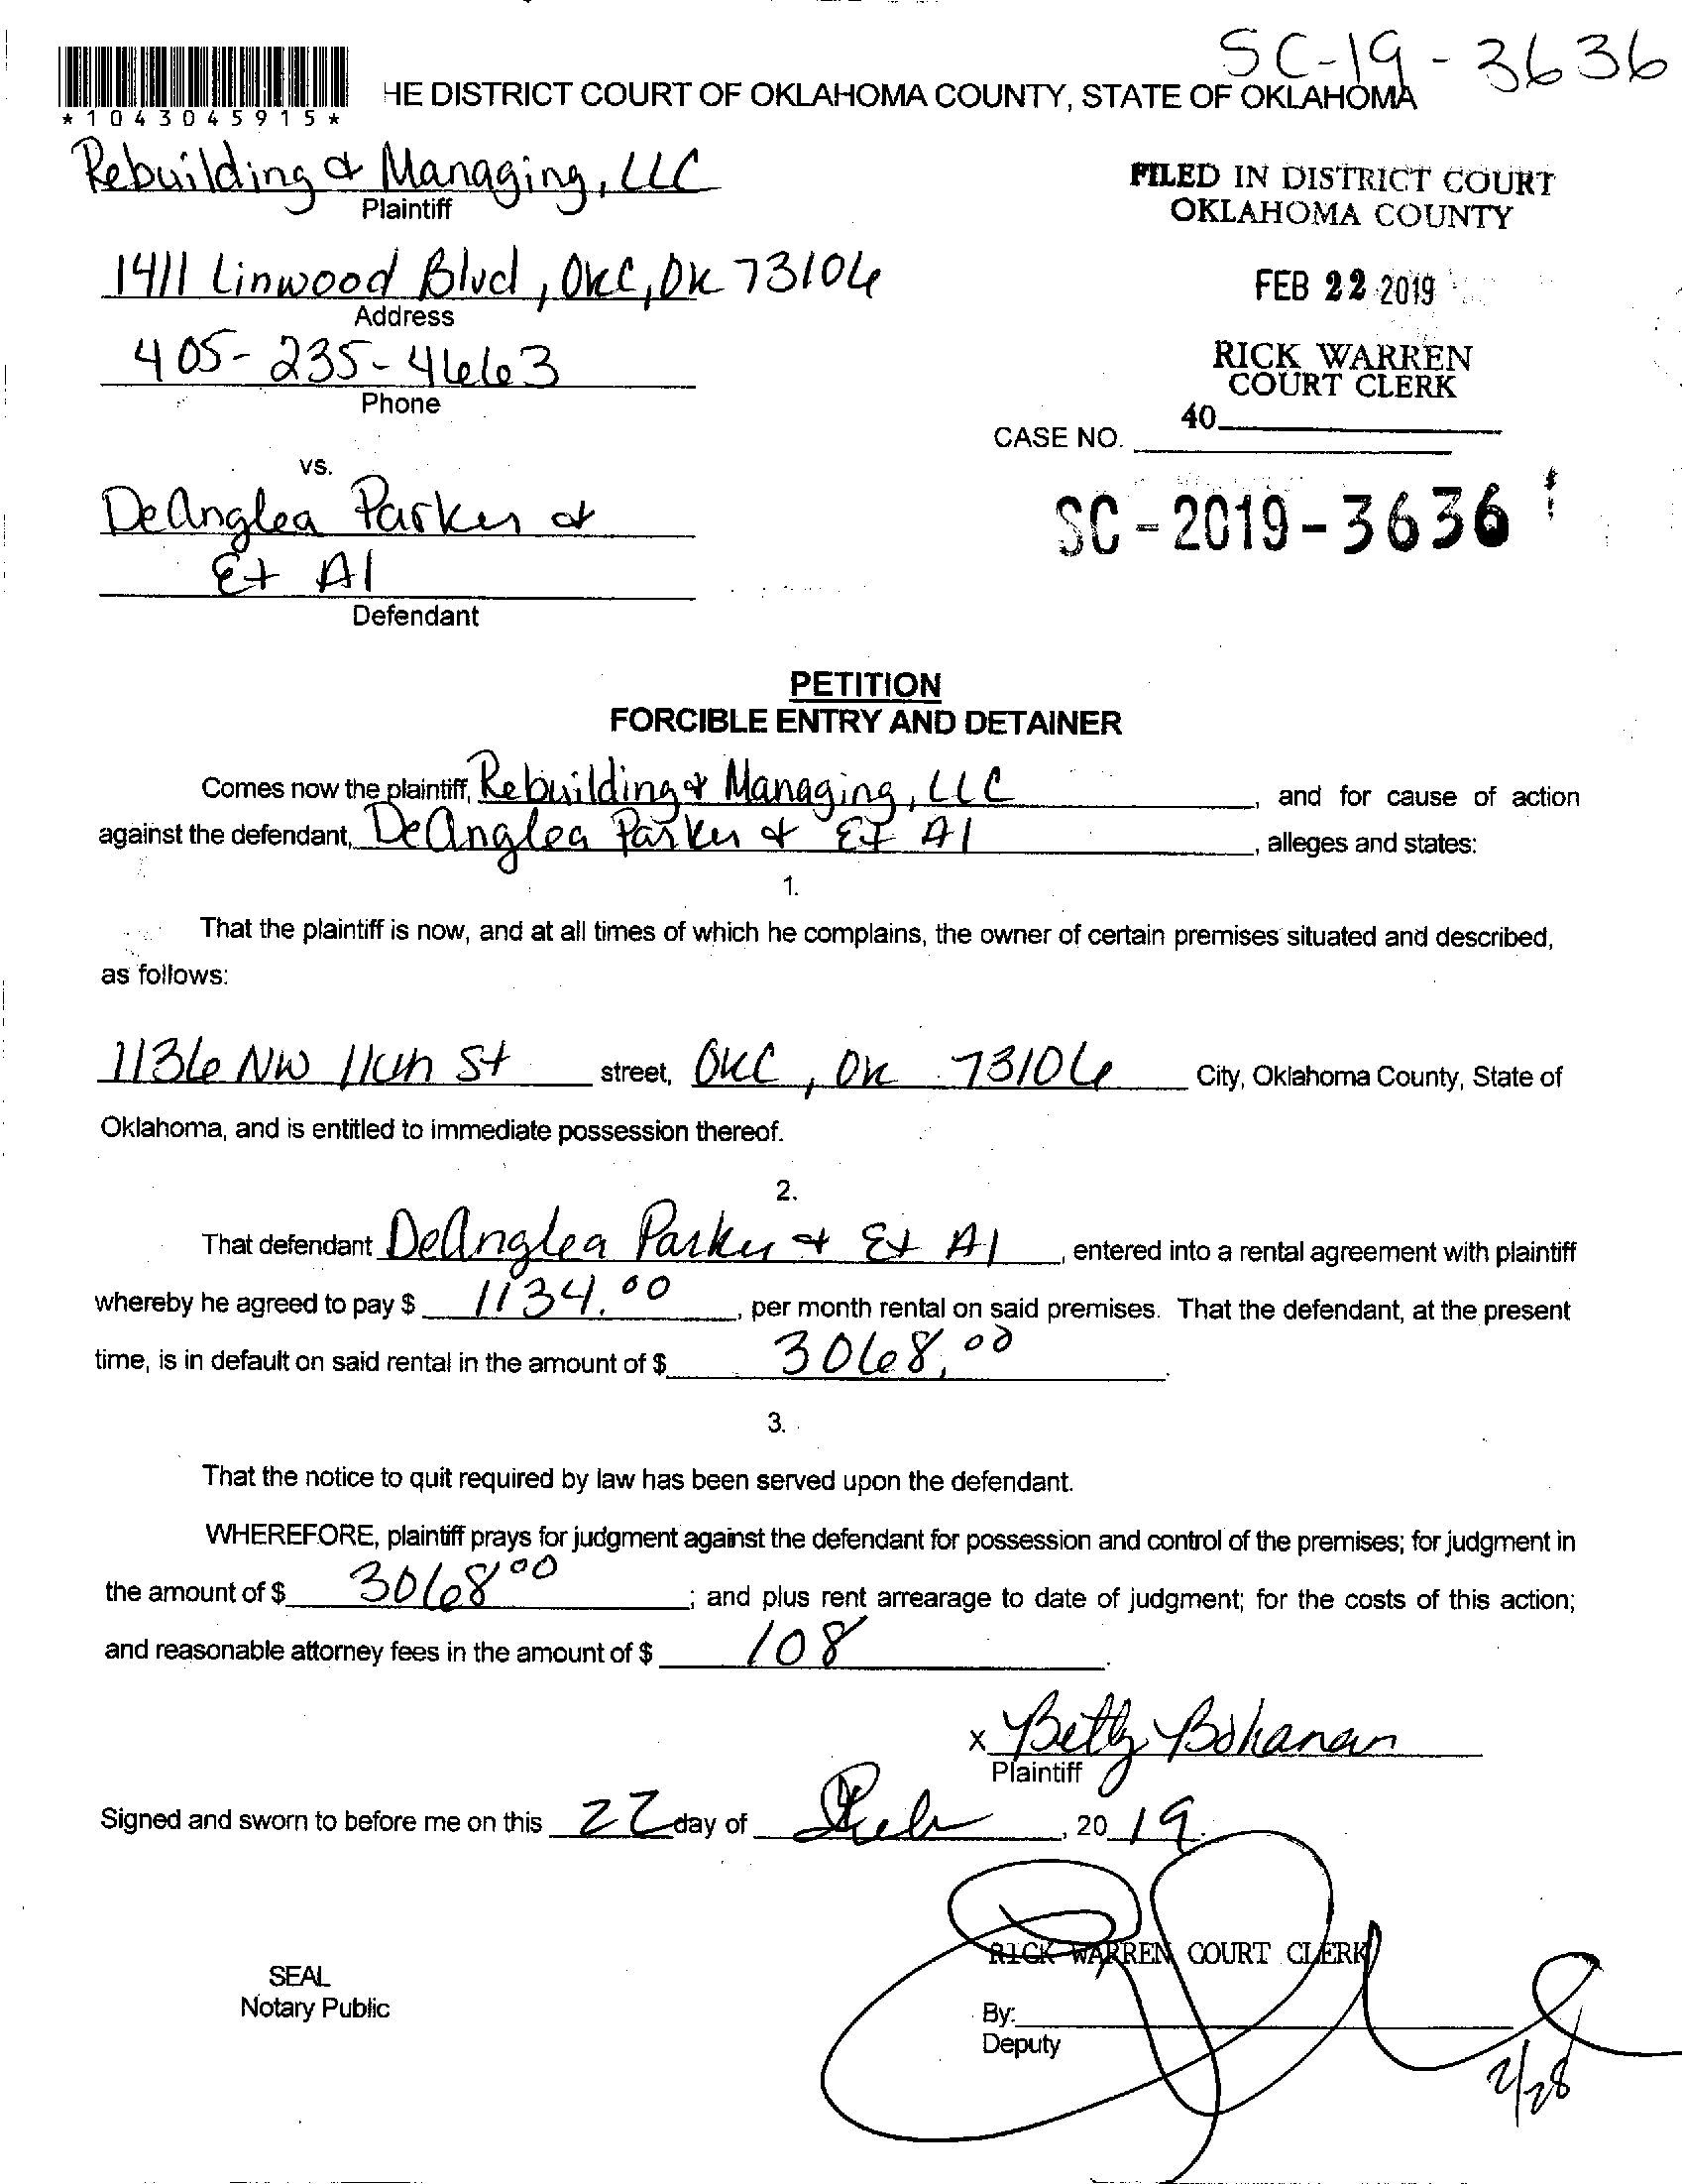 SC-19-3636
*1043045915*
HE DISTRICT COURT OF OKLAHOMA COUNTY, STATE OF OKLAHOMA
Rebuilding & Managing, LLC
Plaintiff
FILED IN DISTRICT COURT
OKLAHOMA COUNTY
1411 Linwood Blvd, OKC, OK 73106
Address
FEB 22 2019
405-235-4663
Phone
RICK WARREN
COURT CLERK
40
CASE NO.
vs.
DeAnglea Parker &
Et Al
Defendant
SC-2019-3636
PETITION
FORCIBLE ENTRY AND DETAINER
Comes now the plaintiff, Rebuilding & Managing, LLC, and for cause of action
against the defendant, DeAnglea Parker & Et Al, alleges and states:
1.
That the plaintiff is now, and at all times of which he complains, the owner of certain premises situated and described,
as follows:
1136 NW 11th St street, OKC, OK 73106 City, Oklahoma County, State of
Oklahoma, and is entitled to immediate possession thereof.
2.
That defendant DeAnglea Parker & Et Al, entered into a rental agreement with plaintiff
whereby he agreed to pay $ 1134.00, per month rental on said premises. That the defendant, at the present
time, is in default on said rental in the amount of $ 3068.00.
3.
That the notice to quit required by law has been served upon the defendant.
WHEREFORE, plaintiff prays for judgment against the defendant for possession and control of the premises; for judgment in
the amount of $ 3068 00; and plus rent arrearage to date of judgment; for the costs of this action;
and reasonable attorney fees in the amount of $ 108.
x Betty Bohanan
Plaintiff
Signed and sworn to before me on this 22 day of Feb, 20 19.
RICK WARREN COURT CLERK
SEAL
Notary Public
By:
Deputy
2/28